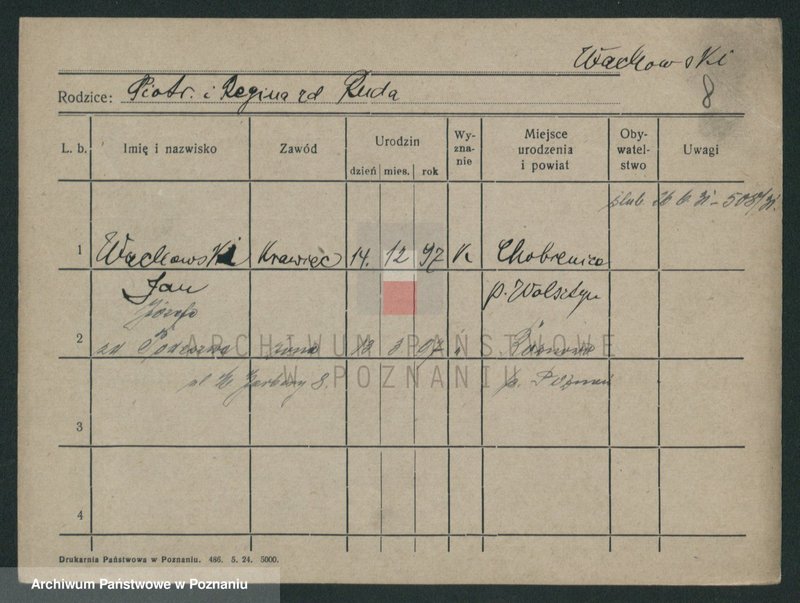 Wachowski
8
Rodzice: Piotr. i Regina zd Ruda
L. b. Imię i nazwisko Zawód Urodzin dzień mies. rok Wy-zna-nie Miejsce urodzenia i powiat Oby-watel-stwo Uwagi
ślub 26 6. 31 - 508/31.
1 Wachowski Krawiec 14. 12 97 k Chobienice
Jan p. Wolsztyn
Józefa
2 zd żona 13 3 07 "
ul. W. Garbary 8. p. Poznań
3
4
Drukarnia Państwowa w Poznaniu. 486. 5. 24. 5000.
ARCHIWUM PAŃSTWOWE
W POZNANIU
Archiwum Państwowe w Poznaniu